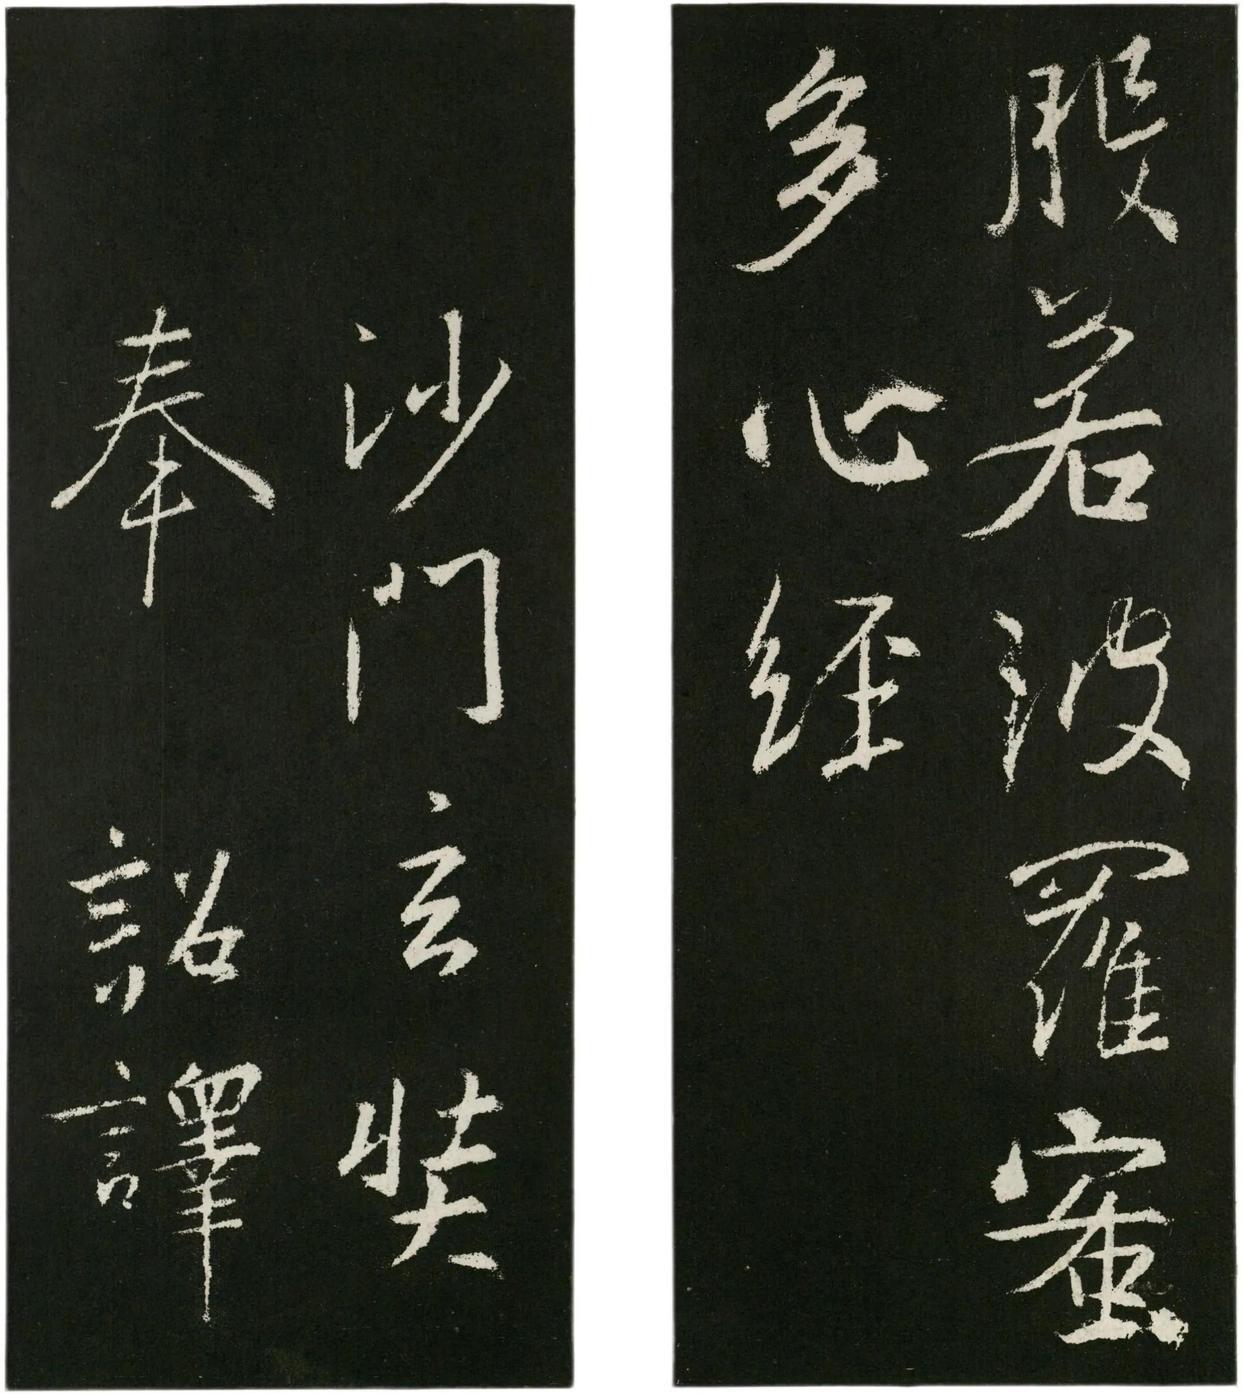 般若波羅蜜
多心経
沙門玄奘
奉 詔譯